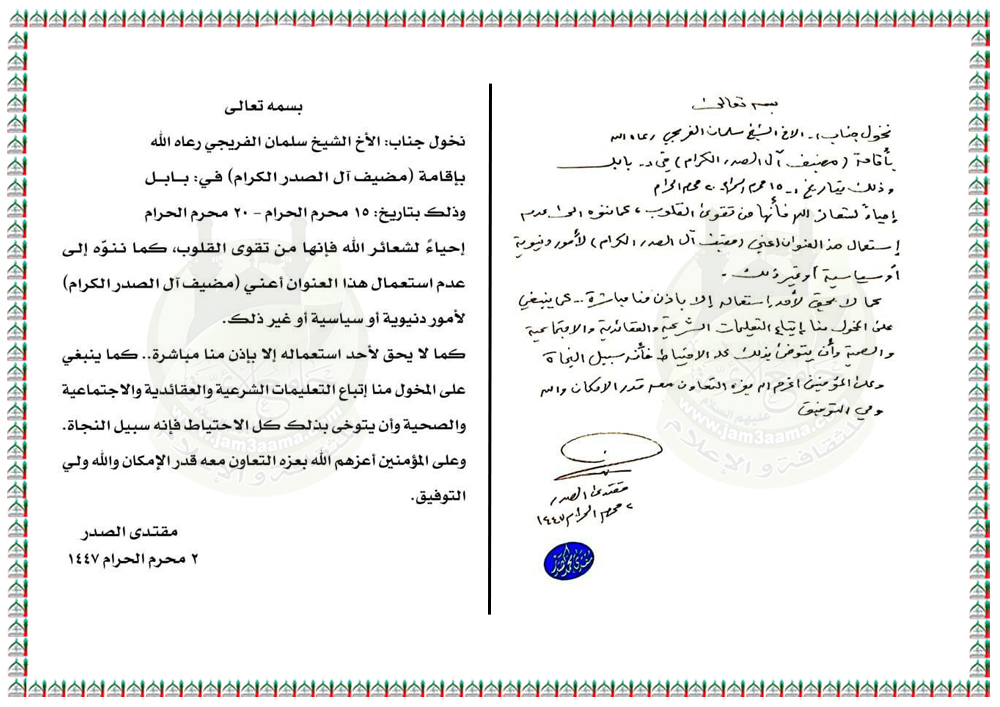 بسمه تعالى
نخول جناب:. الاخ الشيخ سلمان الفريجي رعاه الله
بأقامة (مضيف آل الصدر الكرام) في:. بابل
وذلك بتاريخ:. ١٥ محرم الحرام - ٢٠ محرم الحرام
إحياءً لشعائر الله فأنها من تقوى القلوب، كما ننوه الى عدم
إستعمال هذا العنوان اعني (مضيف آل الصدر الكرام) لأمور دنيوية
أو سياسية أو غير ذلك.
كما لا يحق لأحد استعماله إلا بأذن منا مباشرة.. كما ينبغي
على المخول منا إتباع التعليمات الشرعية والعقائدية والاجتماعية
والصحية وأن يتوخى بذلك كل الاحتياط فأنه سبيل النجاة
وعلى المؤمنين اعزهم الله بعزه التعاون معه قدر الامكان والله
ولي التوفيق
مقتدى الصدر
٢ محرم الحرام ١٤٤٧
بسمه تعالى
نخول جناب: الأخ الشيخ سلمان الفريجي رعاه الله
بإقامة (مضيف آل الصدر الكرام) في: بـابـل
وذلك بتاريخ: ١٥ محرم الحرام - ٢٠ محرم الحرام
إحياءً لشعائر الله فإنها من تقوى القلوب، كما ننوّه إلى
عدم استعمال هذا العنوان أعني (مضيف آل الصدر الكرام)
لأمور دنيوية أو سياسية أو غير ذلك.
كما لا يحق لأحد استعماله إلا بإذن منا مباشرة.. كما ينبغي
على المخول منا إتباع التعليمات الشرعية والعقائدية والاجتماعية
والصحية وأن يتوخى بذلك كل الاحتياط فإنه سبيل النجاة.
وعلى المؤمنين أعزهم الله بعزه التعاون معه قدر الإمكان والله ولي
التوفيق.
مقتدى الصدر
٢ محرم الحرام ١٤٤٧
www.jam3aama.com
للثقافة و الإعلام